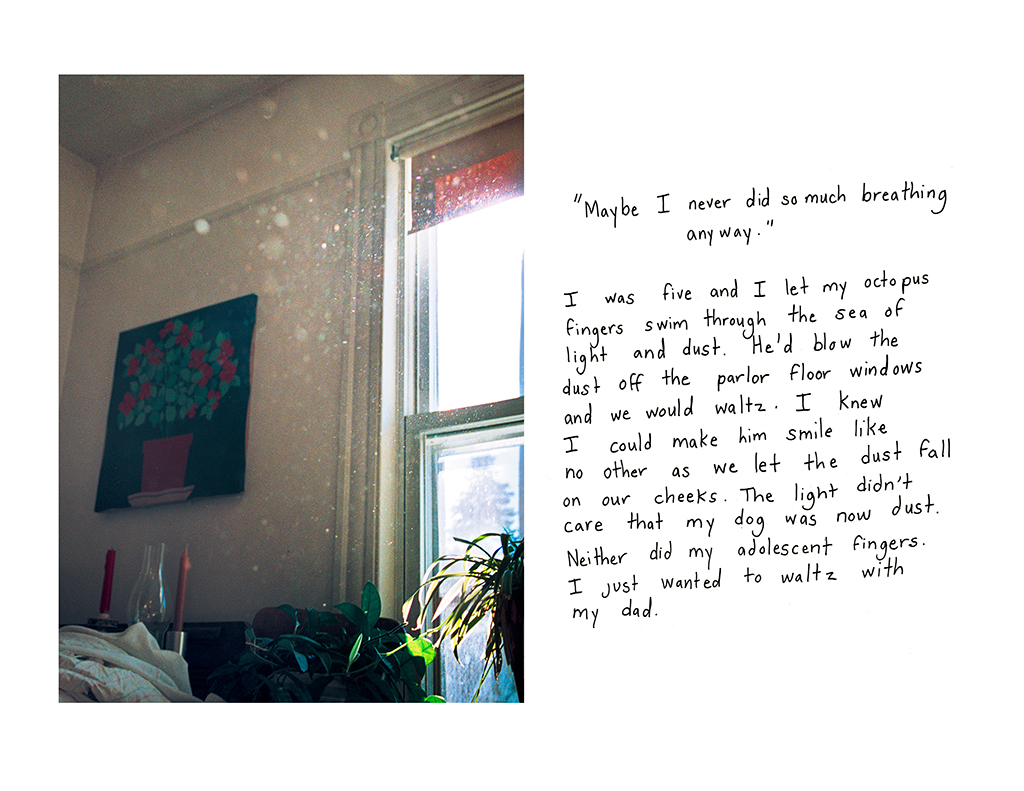 "Maybe I never did so much breathing
anyway."
I was five and I let my octopus
fingers swim through the sea of
light and dust. He'd blow the
dust off the parlor floor windows
and we would waltz. I knew
I could make him smile like
no other as we let the dust fall
on our cheeks. The light didn't
care that my dog was now dust.
Neither did my adolescent fingers.
I just wanted to waltz with
my dad.